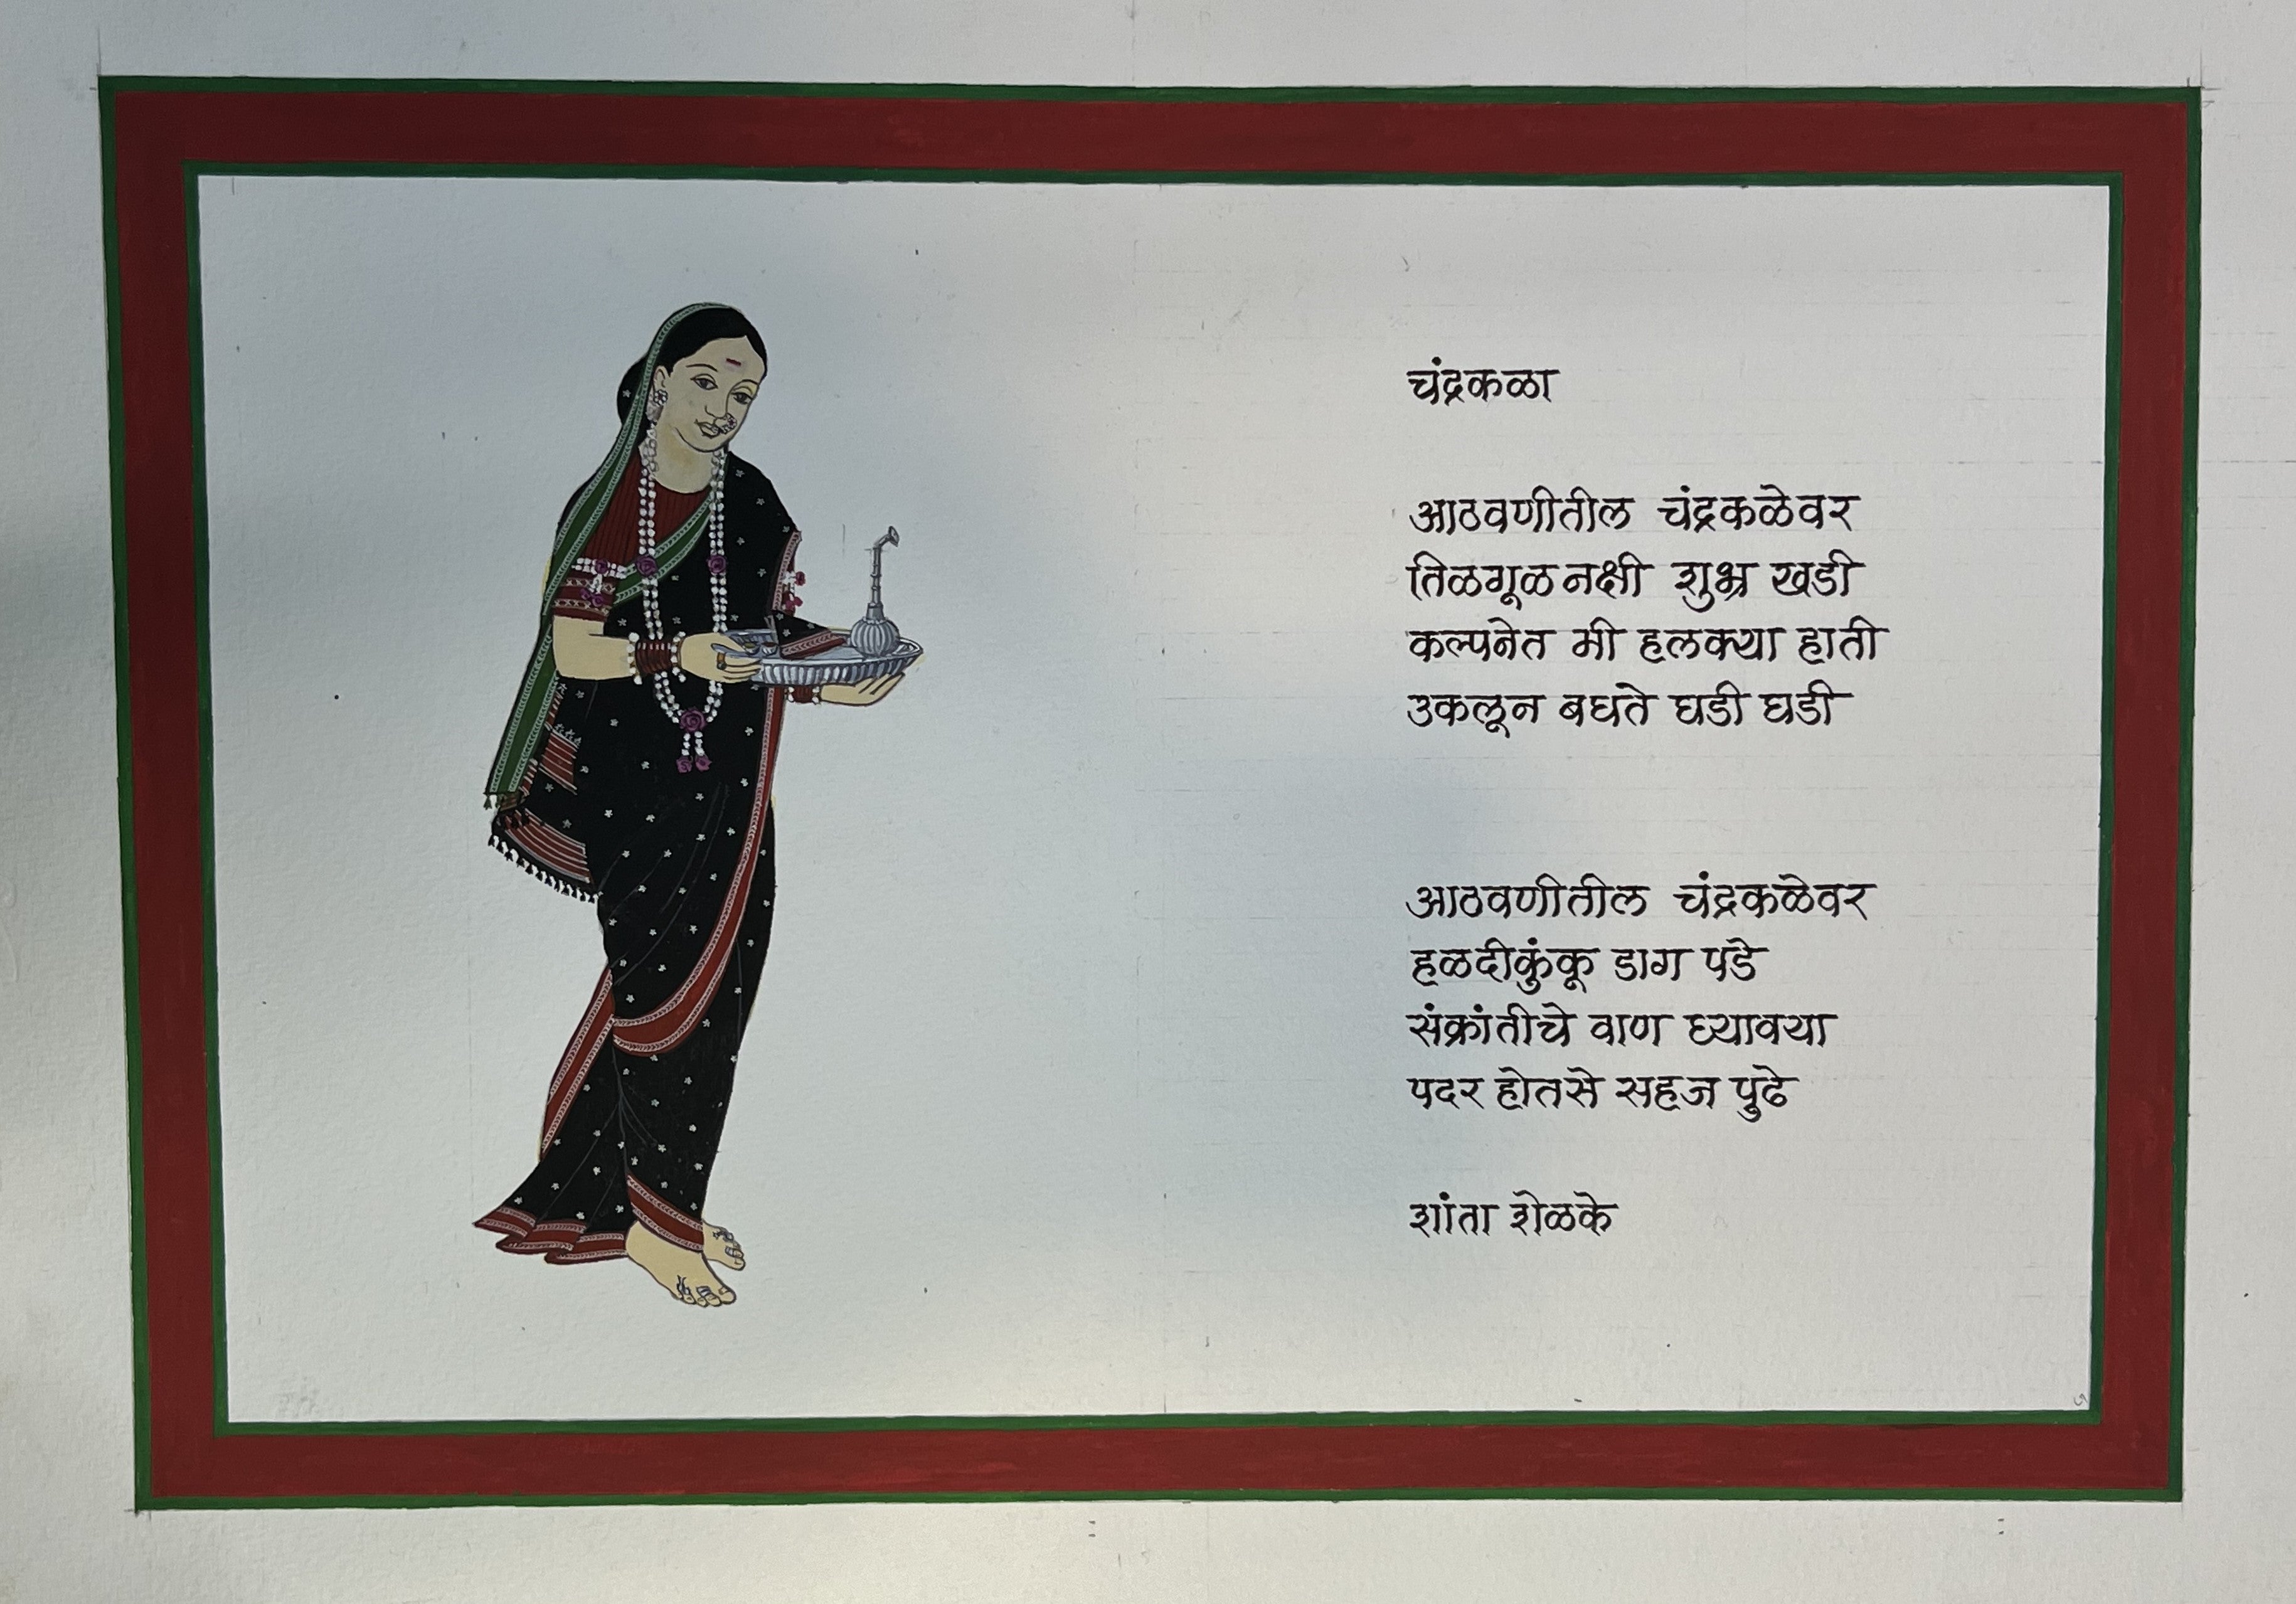 चंद्रकळा
आठवणीतील चंद्रकळेवर
तिळगूळ नक्षी शुभ्र खडी
कल्पनेत मी हलक्या हाती
उकलून बघते घडी घडी
आठवणीतील चंद्रकळेवर
हळदीकुंकू डाग पडे
संक्रांतीचे वाण घ्यावया
पदर होतसे सहज पुढे
शांता शेळके